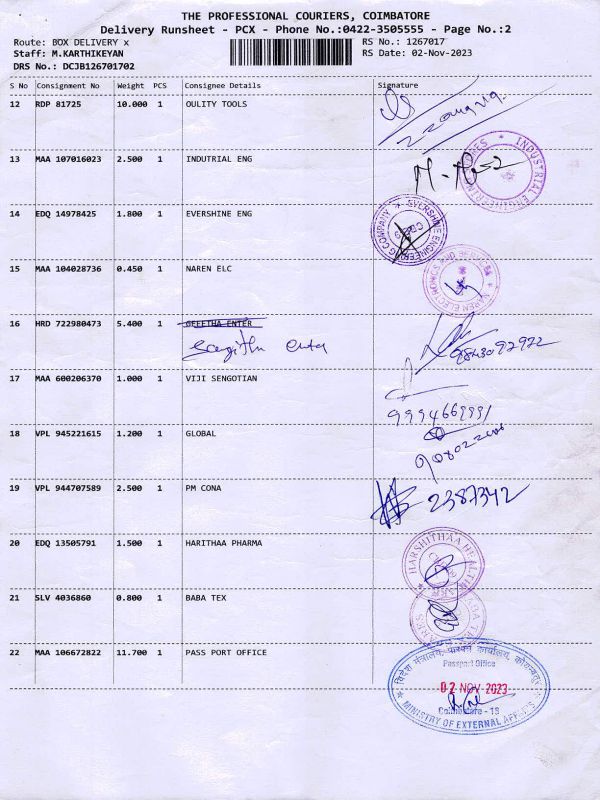 THE PROFESSIONAL COURIERS, COIMBATORE
Delivery Runsheet - PCX - Phone No.:0422-3505555 - Page No.:2
Route: BOX DELIVERY x
RS No.: 1267017
Staff: M.KARTHIKEYAN
RS Date: 02-Nov-2023
DRS No.: DCJB126701702
S No Consignment No Weight PCS Consignee Details Signature
12 RDP 81725 10.000 1 OULITY TOOLS
13 MAA 107016023 2.500 1 INDUTRIAL ENG
INDUSTRIAL ENGINEERING
14 EDQ 14978425 1.800 1 EVERSHINE ENG
15 MAA 104028736 0.450 1 NAREN ELC
NAREN ELECTRONICS AND
16 HRD 722980473 5.400 1 GEEETHA ENTER
17 MAA 600206370 1.000 1 VIJI SENGOTIAN
18 VPL 945221615 1.200 1 GLOBAL
19 VPL 944707589 2.500 1 PM CONA
2387342
20 EDQ 13505791 1.500 1 HARITHAA PHARMA
HARSHITHAA
21 SLV 4036860 0.800 1 BABA TEX
22 MAA 106672822 11.700 1 PASS PORT OFFICE
विदेश मंत्रालय, पारपत्र कार्यालय,
Passport Office
02 NOV 2023
Coimbatore
MINISTRY OF EXTERNAL AFFAIRS